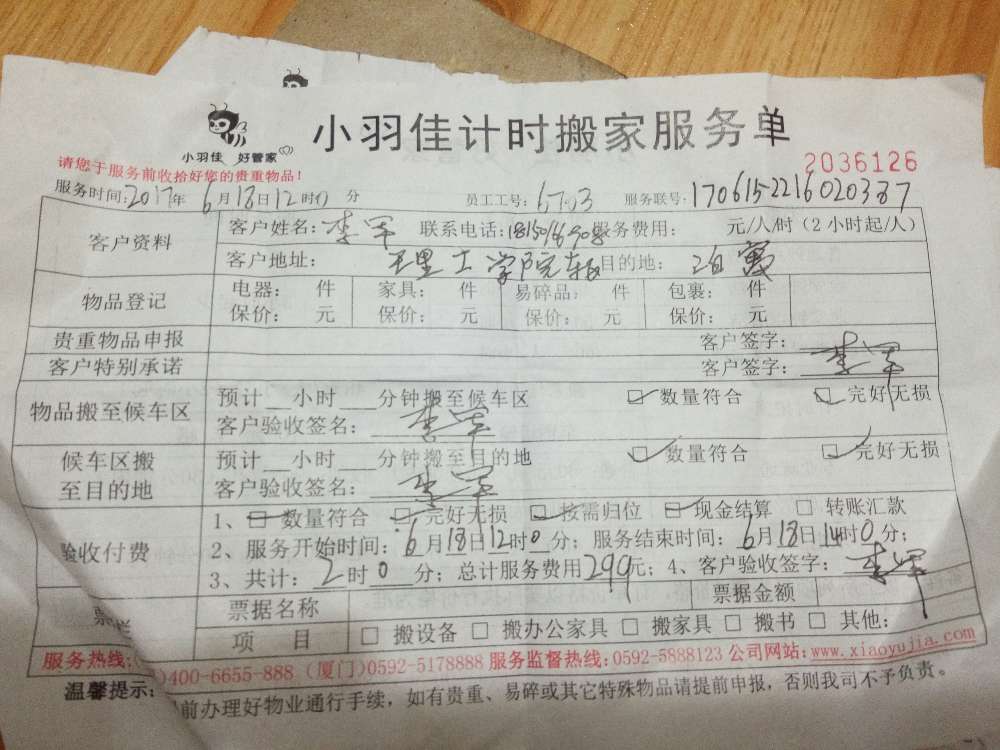 小羽佳计时搬家服务单
小羽佳 好管家
2036126
请您于服务前收拾好您的贵重物品！
服务时间:2017年 6月18日12时0分 员工工号: 6703 服务联号: 1706152216020387
客户资料 客户姓名: 李军 联系电话: 服务费用: 元/人/时（2小时起/人）
客户地址: 理工学院 目的地:
物品登记 电器: 件 家具: 件 易碎品: 件 包裹: 件
保价: 元 保价: 元 保价: 元 保价: 元
贵重物品申报 客户签字:
客户特别承诺 客户签字: 李军
物品搬至候车区 预计__小时___分钟搬至候车区 ☑数量符合 ☑完好无损
客户验收签名: 李军
候车区搬至目的地 预计__小时___分钟搬至目的地 ☑数量符合 ☑完好无损
客户验收签名: 李军
验收付费 1、☑数量符合 ☑完好无损 ☑按需归位 ☑现金结算 □转账汇款
2、服务开始时间: 6月18日12时0分; 服务结束时间: 6月18日14时0分;
3、共计: 2时0分; 总计服务费用290元; 4、客户验收签字: 李军
票 栏 票据名称 票据金额
项 目 □搬设备 □搬办公家具 □搬家具 □搬书 □其他:
服务热线: 400-6655-888 (厦门)0592-5178888 服务监督热线:0592-5888123 公司网站:www.xiaoyujia.com
温馨提示: 前办理好物业通行手续，如有贵重、易碎或其它特殊物品请提前申报，否则我司不予负责。